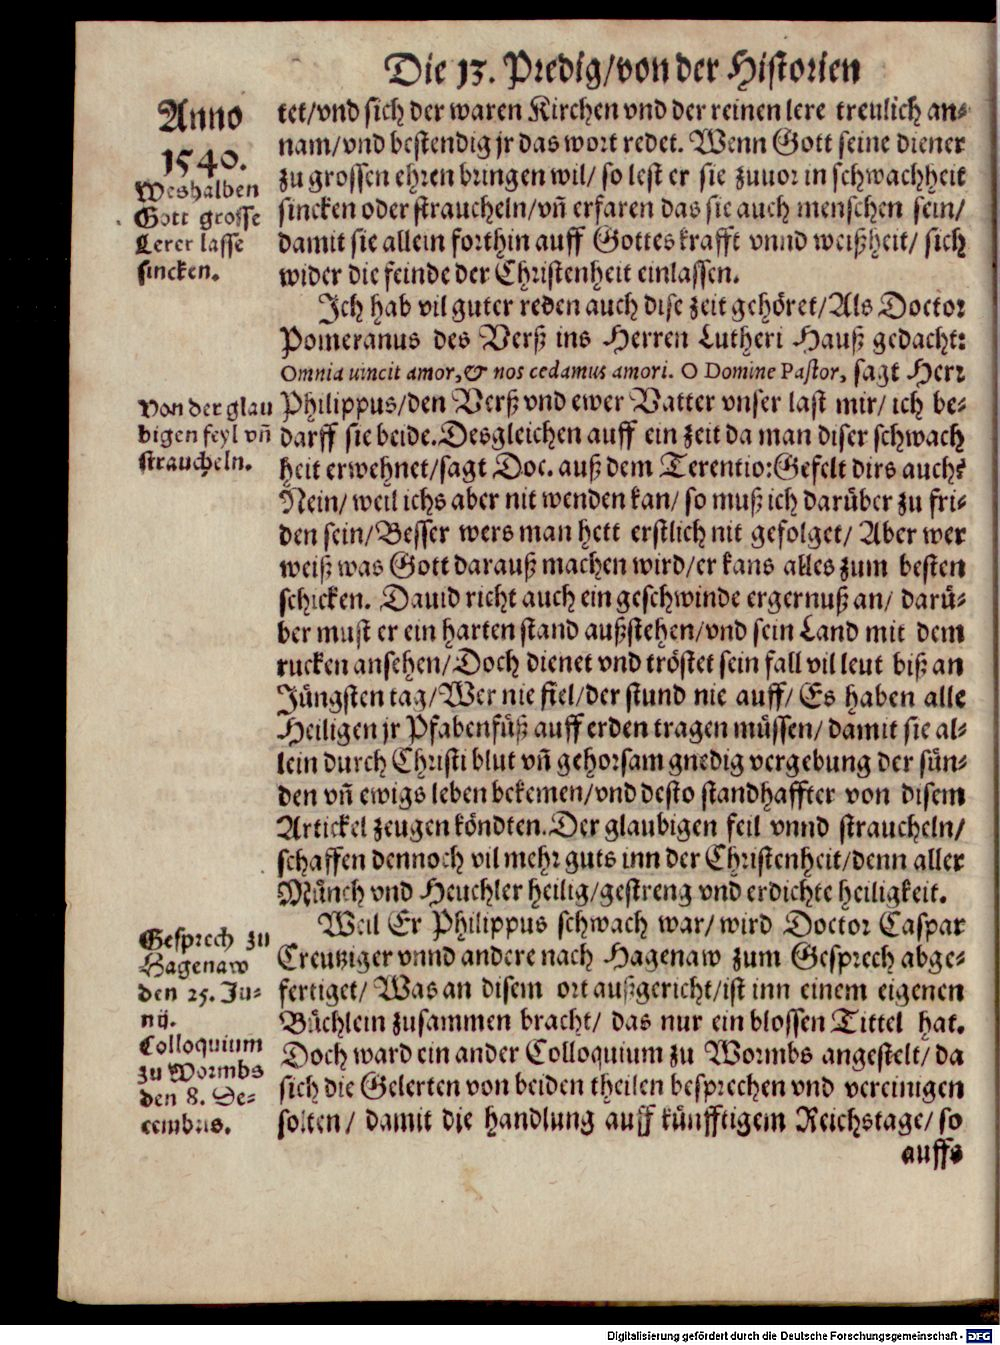 Die 13. Predig/von der Historien
Anno
1540.
Weshalben
Gott grosse
Lerer lasse
sincken.
tet/vnd sich der waren Kirchen vnd der reinen lere treulich an-
nam/vnd bestendig jr das wort redet. Wenn Gott seine diener
zu grossen ehren bringen wil/ so lest er sie zuuor in schwachheit
sincken oder straucheln/vñ erfaren das sie auch menschen sein/
damit sie allein forthin auff Gottes krafft vnnd weißheit/ sich
wider die feinde der Christenheit einlassen.
Ich hab vil guter reden auch dise zeit gehöret/Als Doctor
Pomeranus des Verß ins Herren Lutheri Hauß gedacht:
Omnia uincit amor,& nos cedamus amori. O Domine Pastor, sagt Herr
Von der glau
bigen feyl vñ
straucheln.
Philippus/den Verß vnd ewer Vatter vnser last mir/ ich be-
darff sie beide.Desgleichen auff ein zeit da man diser schwach
heit erwehnet/sagt Doc. auß dem Terentio:Gefelt dirs auch?
Nein/ weil ichs aber nit wenden kan/ so muß ich darüber zu fri-
den sein/Besser wers man hett erstlich nit gefolget/ Aber wer
weiß was Gott darauß machen wird/er kans alles zum besten
schicken. Dauid richt auch ein geschwinde ergernuß an/ darü-
ber must er ein harten stand außstehen/vnd sein Land mit dem
rucken ansehen/Doch dienet vnd tröstet sein fall vil leut biß an
Jüngsten tag/Wer nie fiel/der stund nie auff/ Es haben alle
Heiligen jr Pfabenfüß auff erden tragen müssen/ damit sie al-
lein durch Christi blut vñ gehorsam gnedig vergebung der sün-
den vñ ewigs leben bekemen/vnd desto standhaffter von disem
Artickel zeugen köndten.Der glaubigen feil vnnd straucheln/
schaffen dennoch vil mehr guts inn der Christenheit/denn aller
Münch vnd Heuchler heilig/gestreng vnd erdichte heiligkeit.
Gesprech zu
Hagenaw
den 25. Ju-
nij.
Colloquium
zu Wormbs
den 8. De-
cembris.
Weil Er Philippus schwach war/ wird Doctor Caspar
Creutziger vnnd andere nach Hagenaw zum Gesprech abge-
fertiget/ Was an disem ort außgericht/ist inn einem eigenen
Büchlein zusammen bracht/ das nur ein blossen Tittel hat.
Doch ward ein ander Colloquium zu Wormbs angestelt/ da
sich die Gelerten von beiden theilen besprechen vnd vereinigen
solten/ damit die handlung auff künfftigem Reichstage/ so
auffs
Digitalisierung gefördert durch die Deutsche Forschungsgemeinschaft - DFG